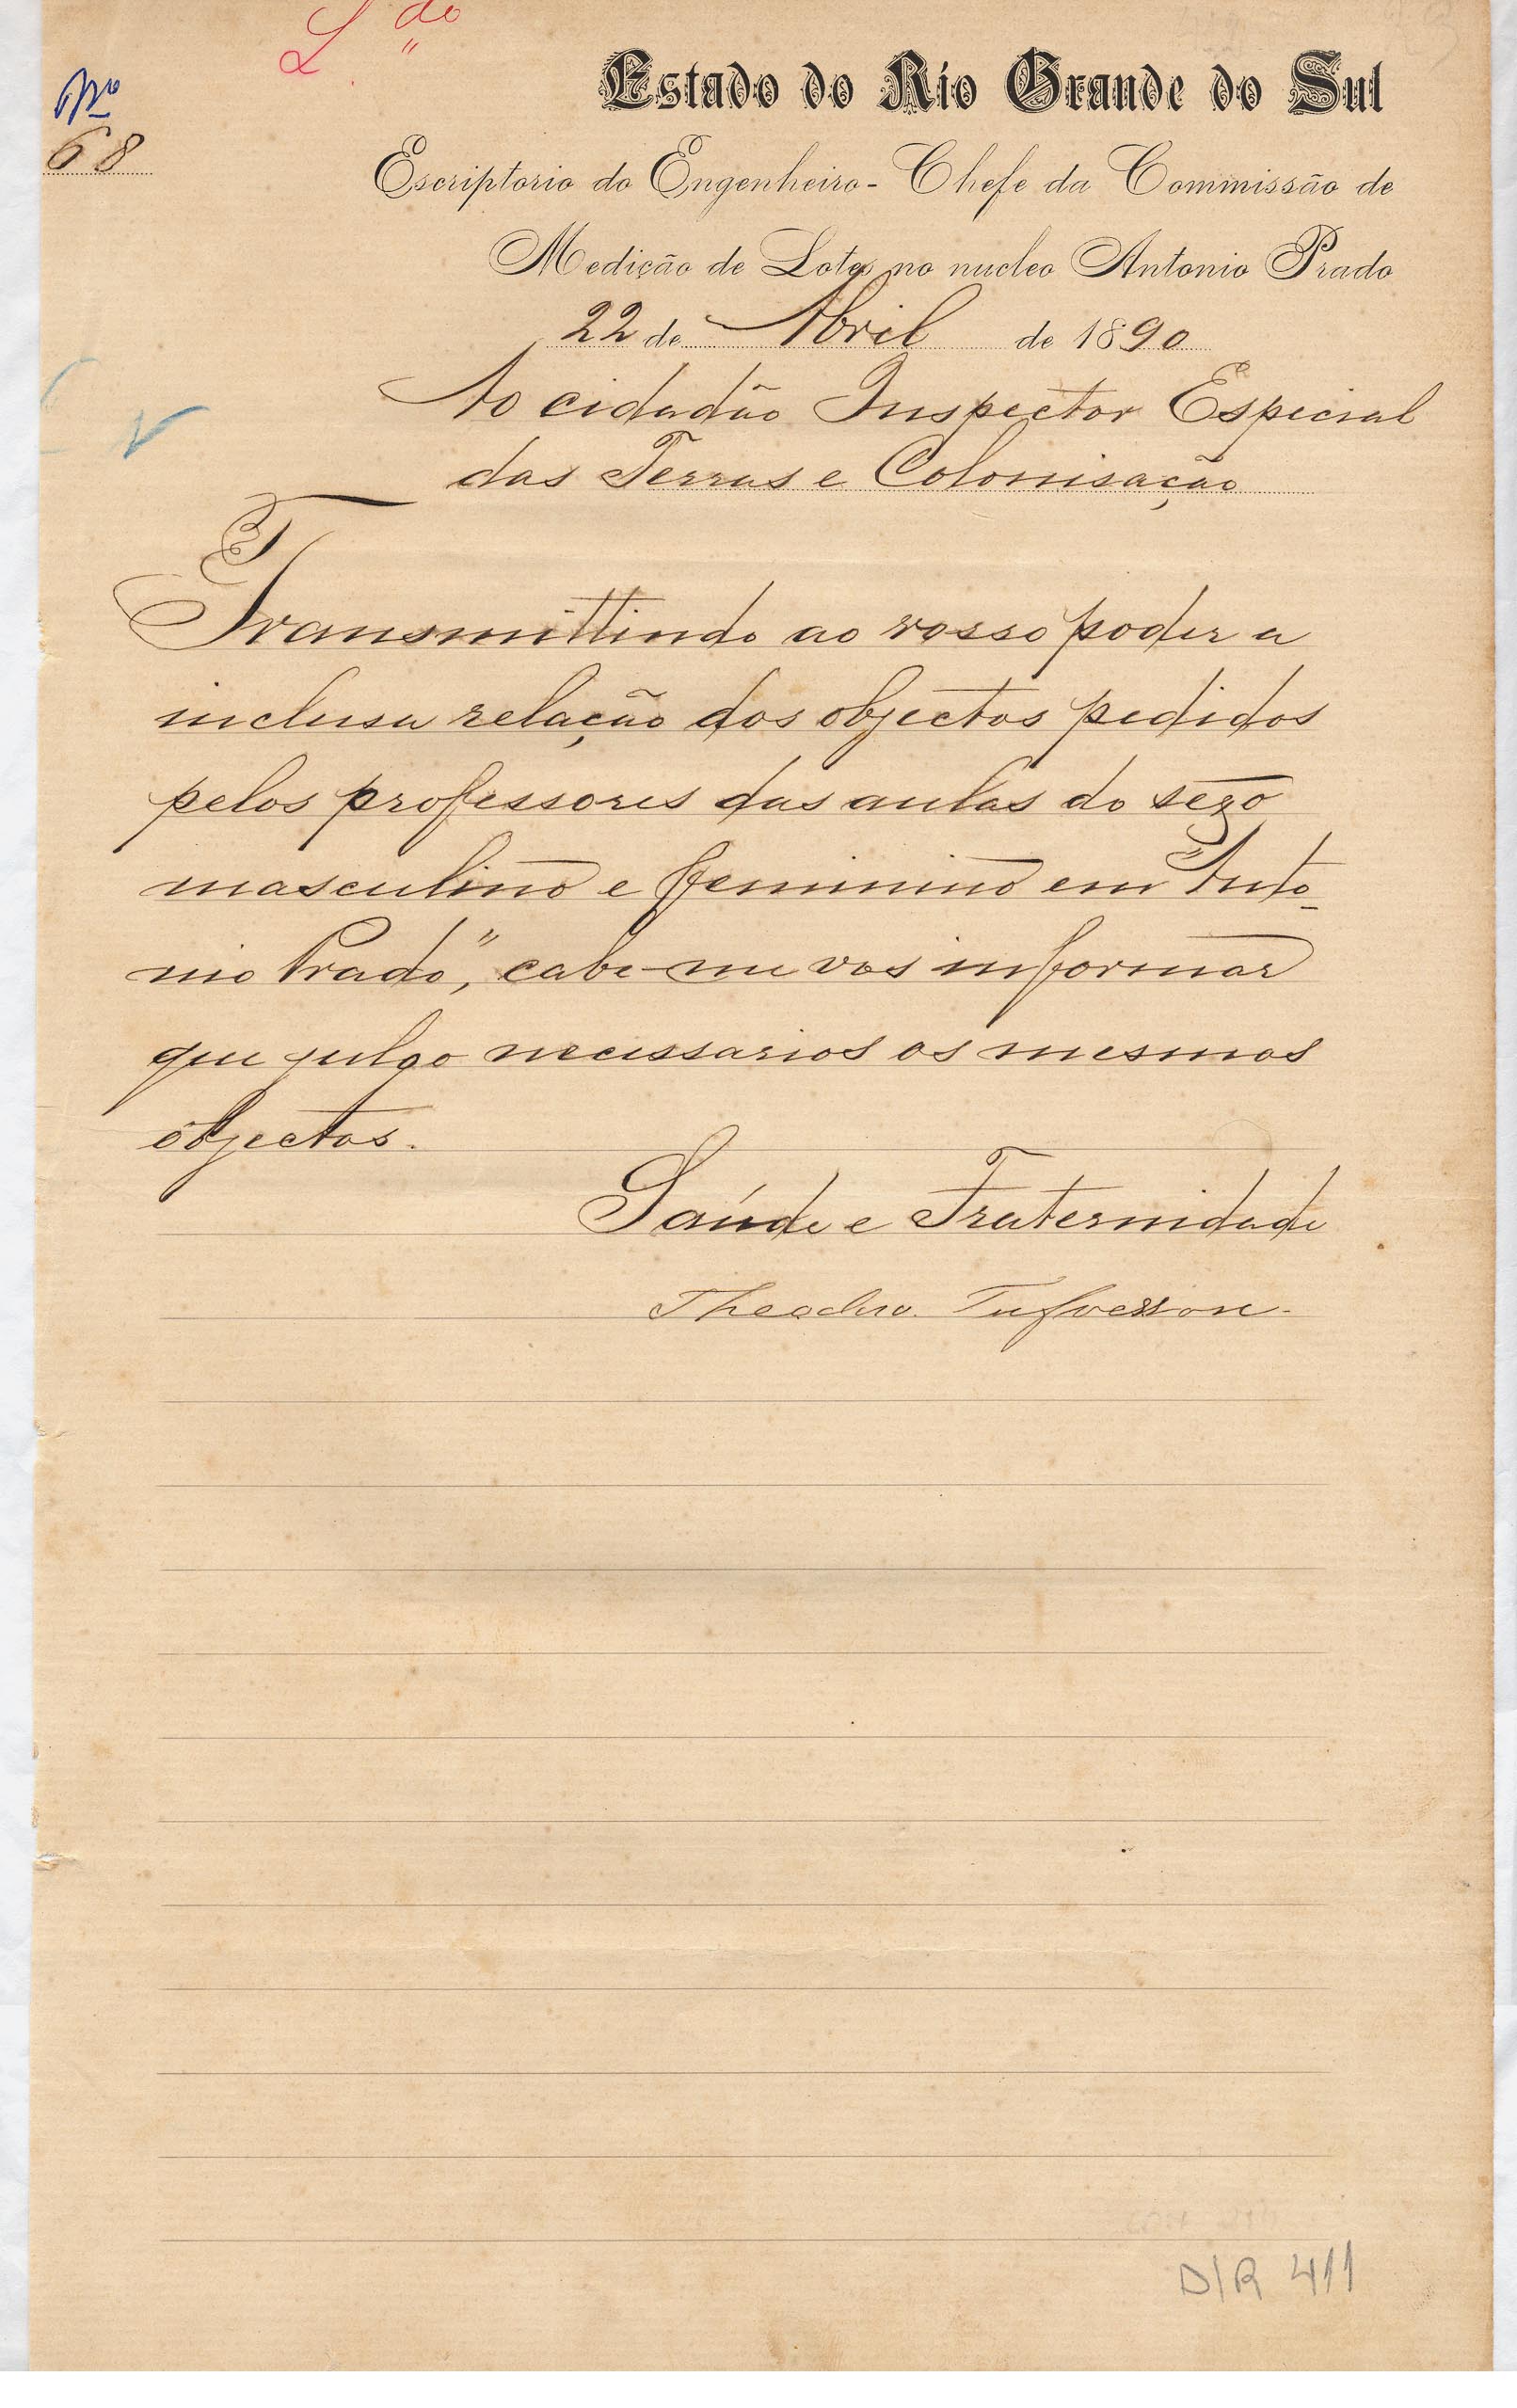 L.do
Estado do Rio Grande do Sul
Nº
68
Escriptorio do Engenheiro-Chefe da Commissão de
Medição de Lotes no nucleo Antonio Prado
22 de Abril de 1890
Ao cidadão Inspector Especial
das Terras e Colonisação
Transmittindo ao vosso poder a
inclusa relação dos objectos pedidos
pelos professores das aulas do sexo
masculino e feminino em "Anto-
nio Prado", cabe-me vos informar
que julgo necessarios os mesmos
objectos.
Saúde e Fraternidade
Theodoro Tufvesson
D/R 411